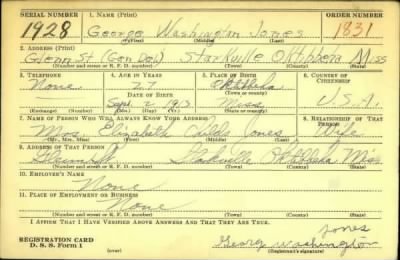 SERIAL NUMBER 1. NAME (Print) ORDER NUMBER
1928 George Washington Jones 1831
(First) (Middle) (Last)
2. ADDRESS (Print)
Glenn St (Gen Del) Starkville Oktibbeha Miss
(Number and street or R. F. D. number) (Town) (County) (State)
3. TELEPHONE 4. AGE IN YEARS 5. PLACE OF BIRTH 6. COUNTRY OF CITIZENSHIP
None 27 Oktibbeha
DATE OF BIRTH (Town or county)
Sept. 2 1913 Miss U.S.A.
(Exchange) (Number) (Mo.) (Day) (Yr.) (State or country)
7. NAME OF PERSON WHO WILL ALWAYS KNOW YOUR ADDRESS 8. RELATIONSHIP OF THAT PERSON
Mrs. Elizabeth Childs Jones Wife
(Mr., Mrs., Miss) (First) (Middle) (Last)
9. ADDRESS OF THAT PERSON
Starkville Oktibbeha Miss
(Number and street or R. F. D. number) (Town) (County) (State)
10. EMPLOYER'S NAME
None
11. PLACE OF EMPLOYMENT OR BUSINESS
None
(Number and street or R. F. D. number) (Town) (County) (State)
I AFFIRM THAT I HAVE VERIFIED ABOVE ANSWERS AND THAT THEY ARE TRUE.
Jones
REGISTRATION CARD George Washington
D. S. S. Form 1 (over) (Registrant's signature)